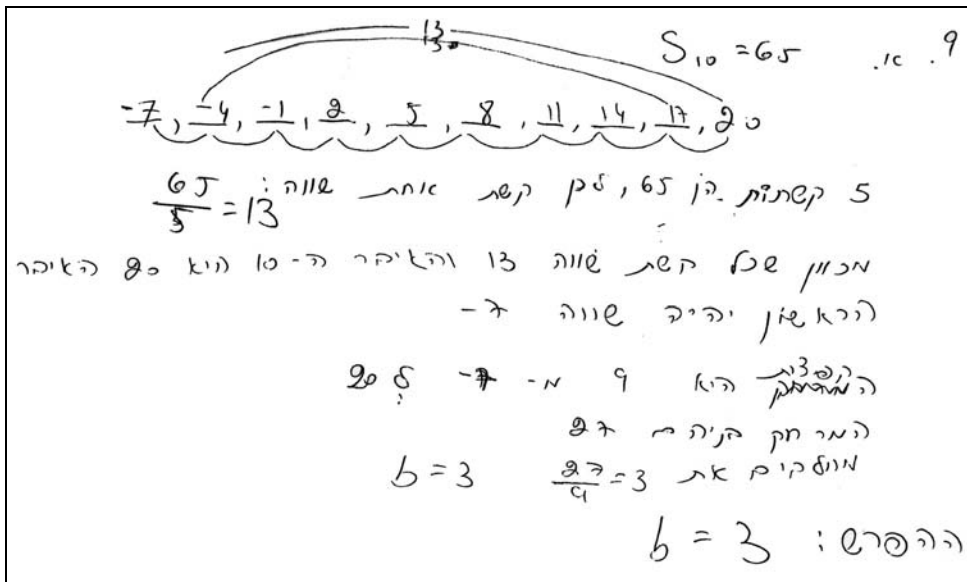 9. א. S₁₀ = 65
13
13
-7, -4, -1, 2, 5, 8, 11, 14, 17, 20
5 קשתות הן 65, לכן קשת אחת שווה: 65/5 = 13
מכוון שכל קשת שווה 13 והאיבר ה-10 הוא 20 האיבר
הראשון יהיה שווה -7
הקפצות היא 9 מ- -7 ל 20
המרחק בניהם 27
מחלקים את 27/9 = 3 b = 3
ההפרש: b = 3